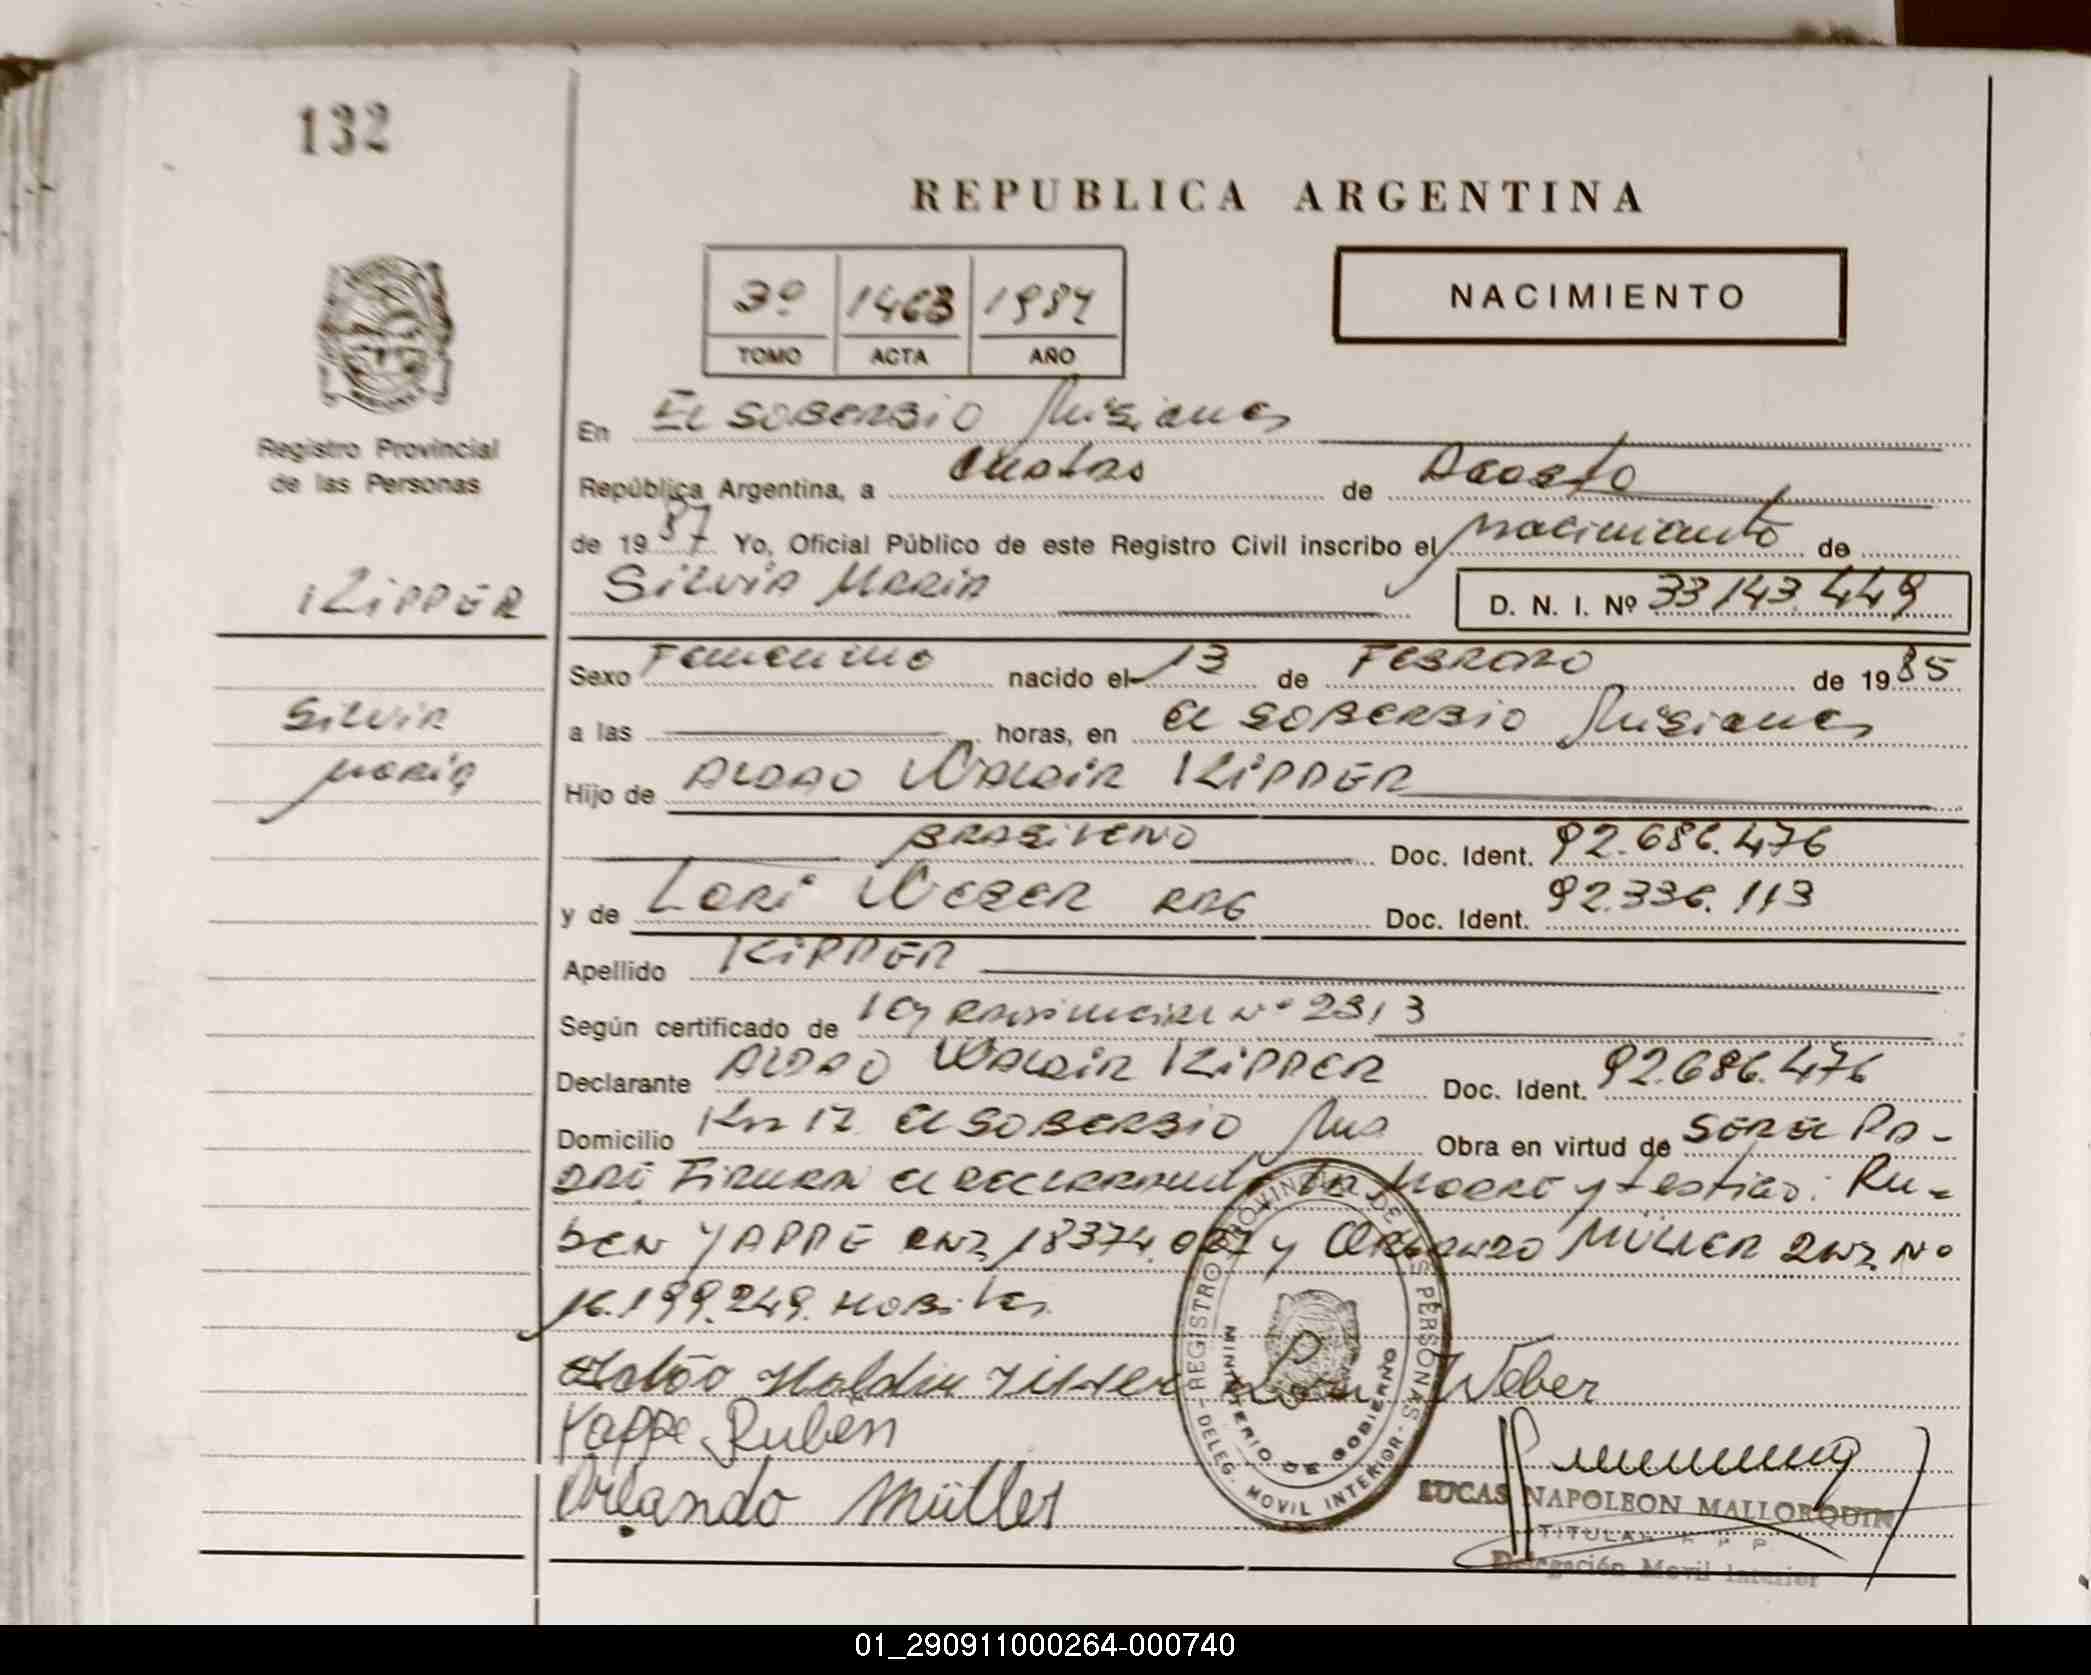 132
REPUBLICA ARGENTINA
3º 1463 1987
TOMO ACTA AÑO
NACIMIENTO
Registro Provincial
de las Personas
En El SOBERBIO Misiones
República Argentina, a cuatro de Agosto
de 1987 Yo, Oficial Público de este Registro Civil inscribo el nacimiento de
KiPPER
Silvia Maria
D. N. I. Nº 33.143.449
Sexo Femenino nacido el 13 de Febrero de 1985
Silvia
a las horas, en El SOBERBIO Misiones
Maria
Hijo de ALDAO Waldir KiPPER
BRASILENO Doc. Ident. 92.686.476
y de Lori Weber ARG Doc. Ident. 92.336.113
Apellido KiPPER
Según certificado de ley Provincial Nº 2313
Declarante ALDAO Waldir KiPPER Doc. Ident. 92.686.476
Domicilio Km 17 El SOBERBIO Mns Obra en virtud de SER El PA-
DRE Firman el declarante la Madre y testigos: Ru-
ben YAPPE DNI 18374.087 y ORLANDO MÜLLER DNI Nº
16.199.249.
Weber
Yappe Rubén
Orlando Müller
REGISTRO PROVINCIAL DE LAS PERSONAS
MINISTERIO DE GOBIERNO
DELEG. MOVIL INTERIOR
LUCAS NAPOLEON MALLORQUIN
TITULAR R P P
Delegación Movil Interior
01_290911000264-000740